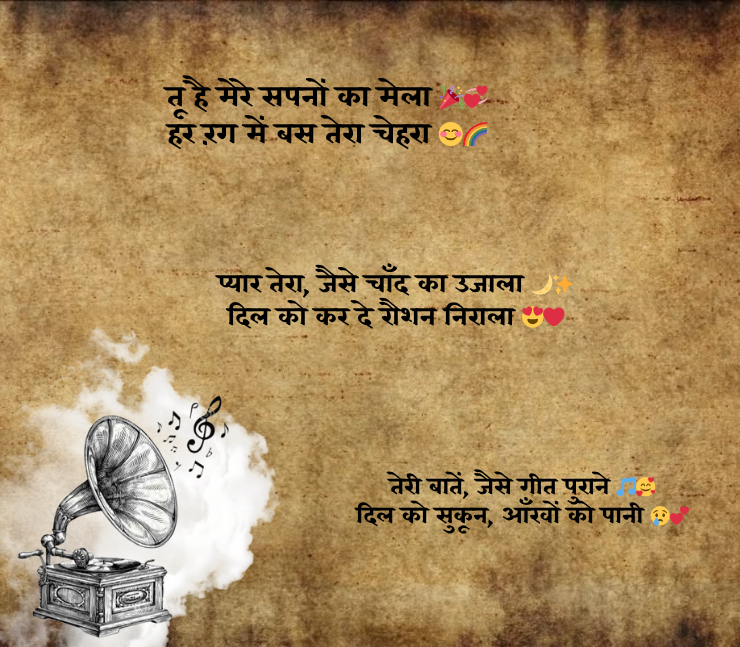 तू है मेरे सपनों का मेला 🎉💞
हर रंग में बस तेरा चेहरा 😊🌈
प्यार तेरा, जैसे चाँद का उजाला 🌙✨
दिल को कर दे रौशन निराला 😍❤️
तेरी बातें, जैसे गीत पुराने 🎵🥰
दिल को सुकून, आँखों को पानी 😢💕